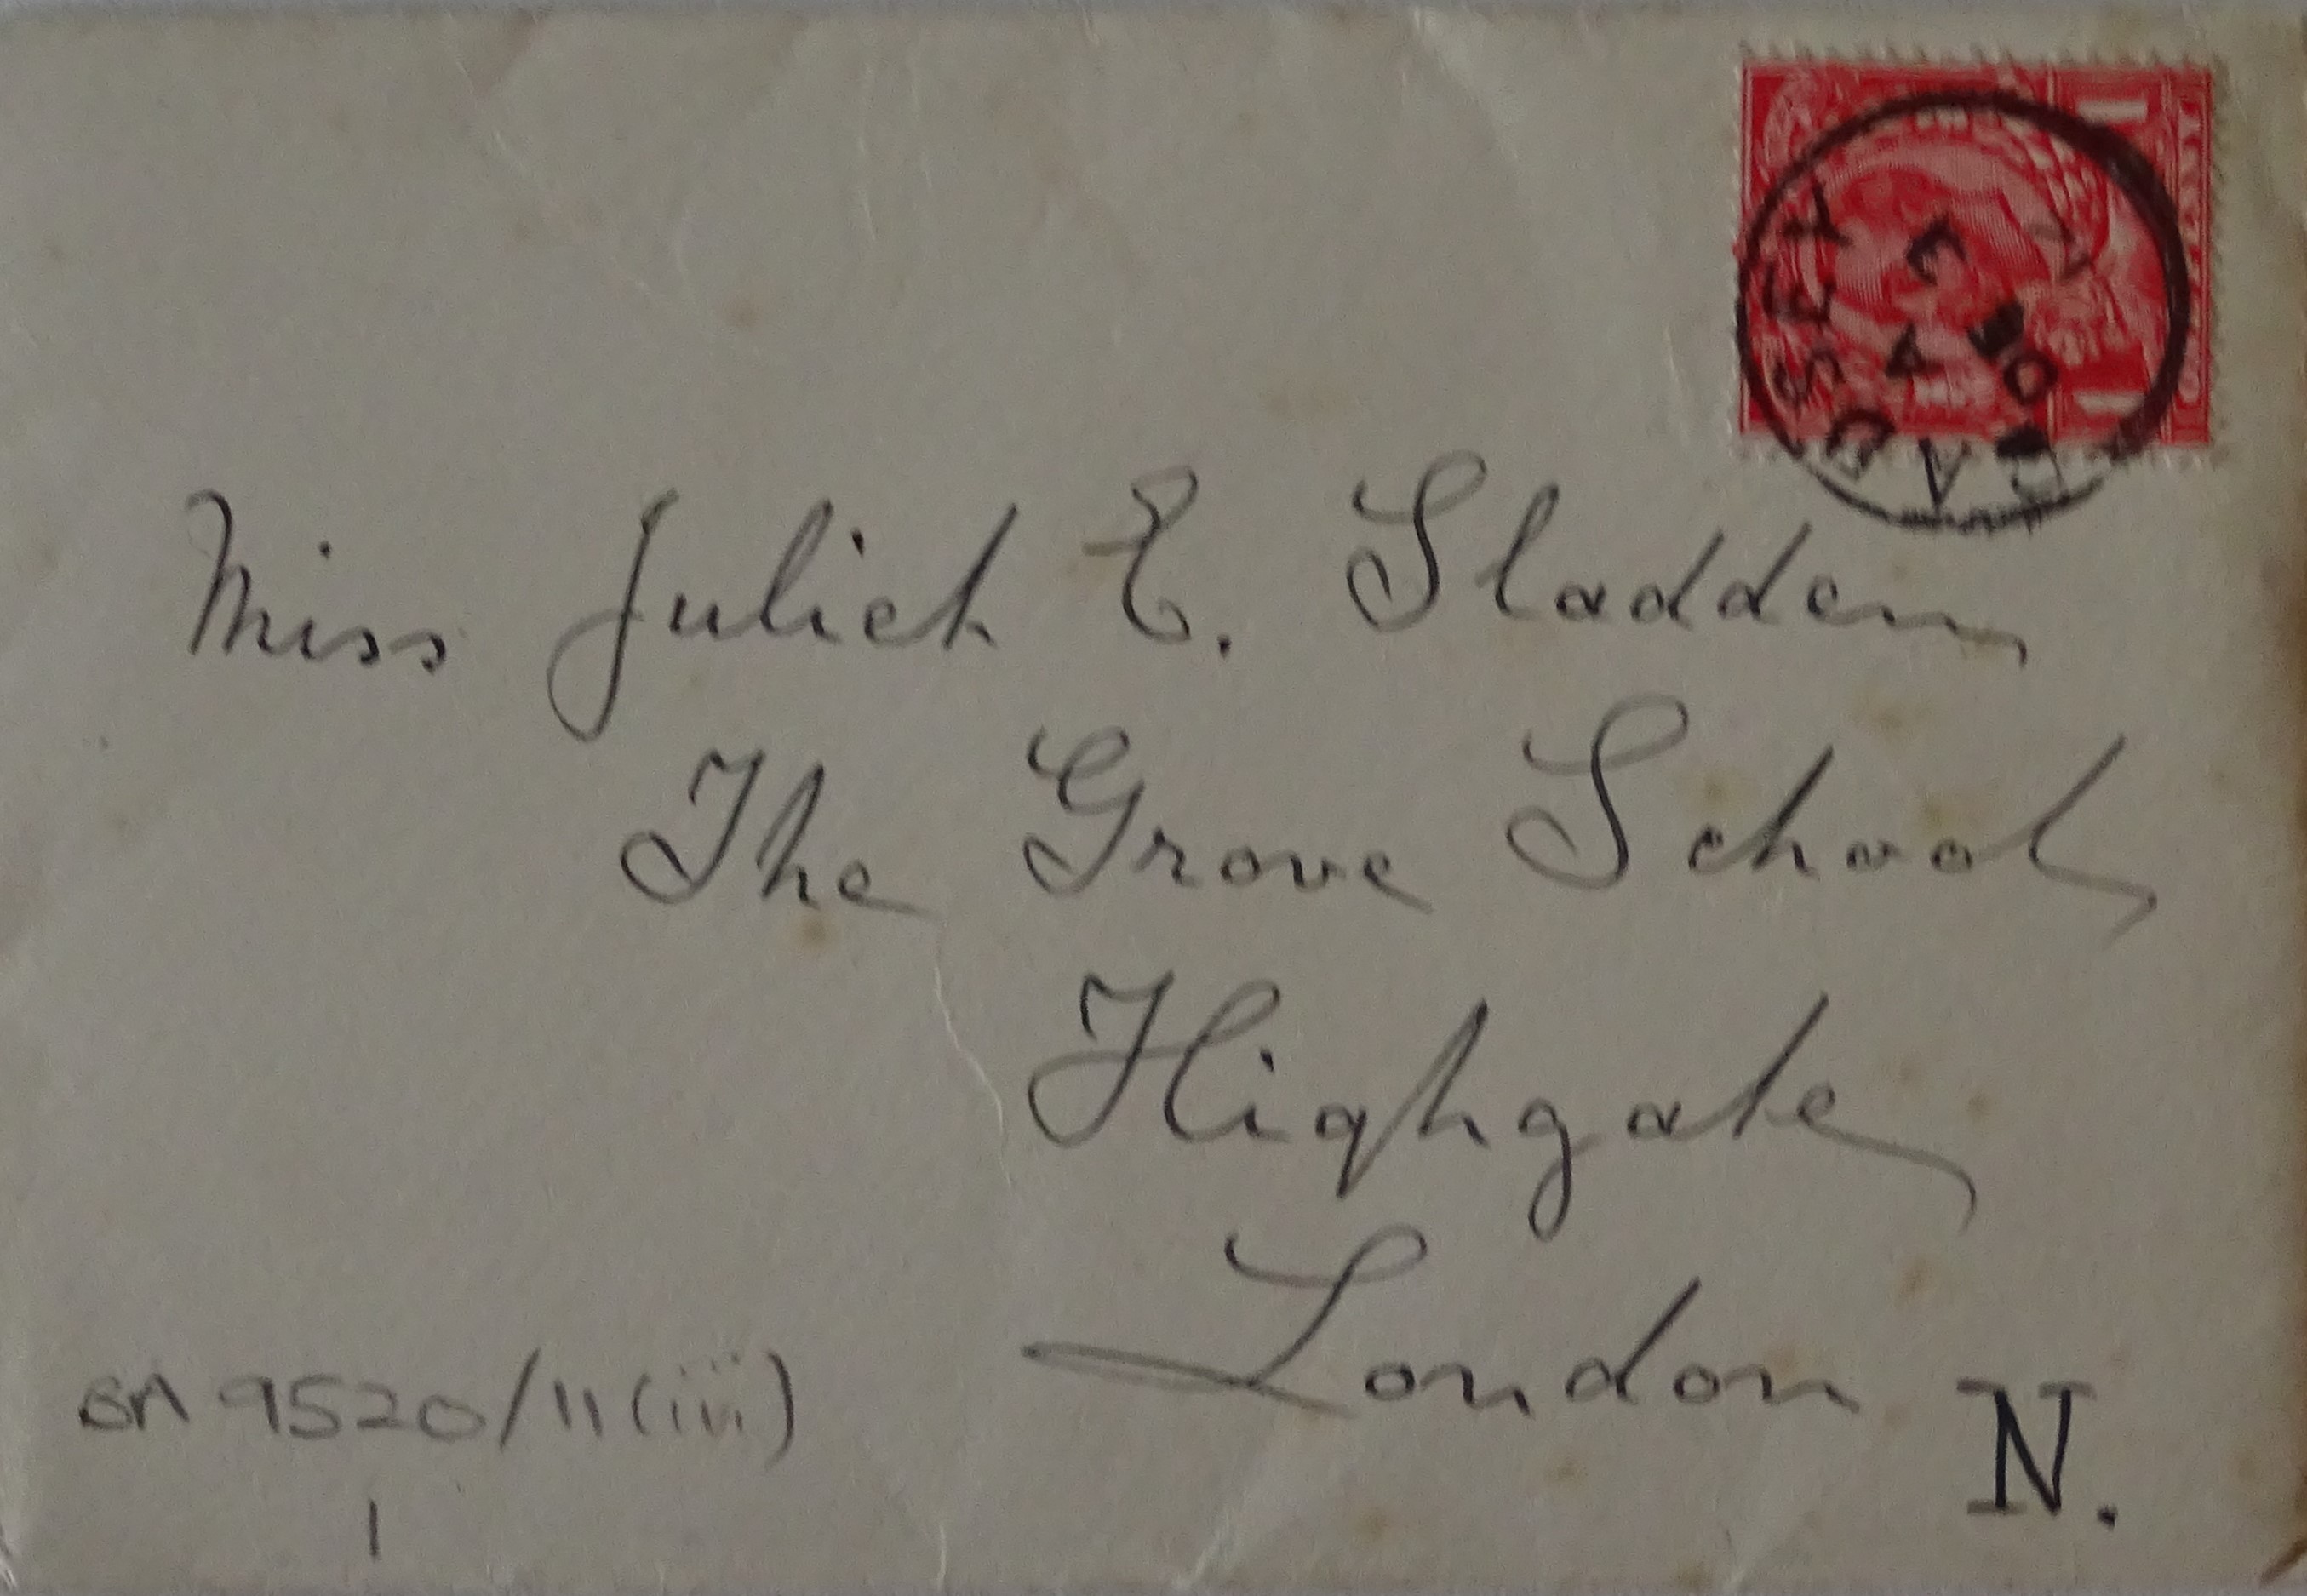 BADSEY
A
ONE PENNY
Miss Juliet E. Sladden
The Grove School
Highgate
London N.
BA 9520/11(iii)
1